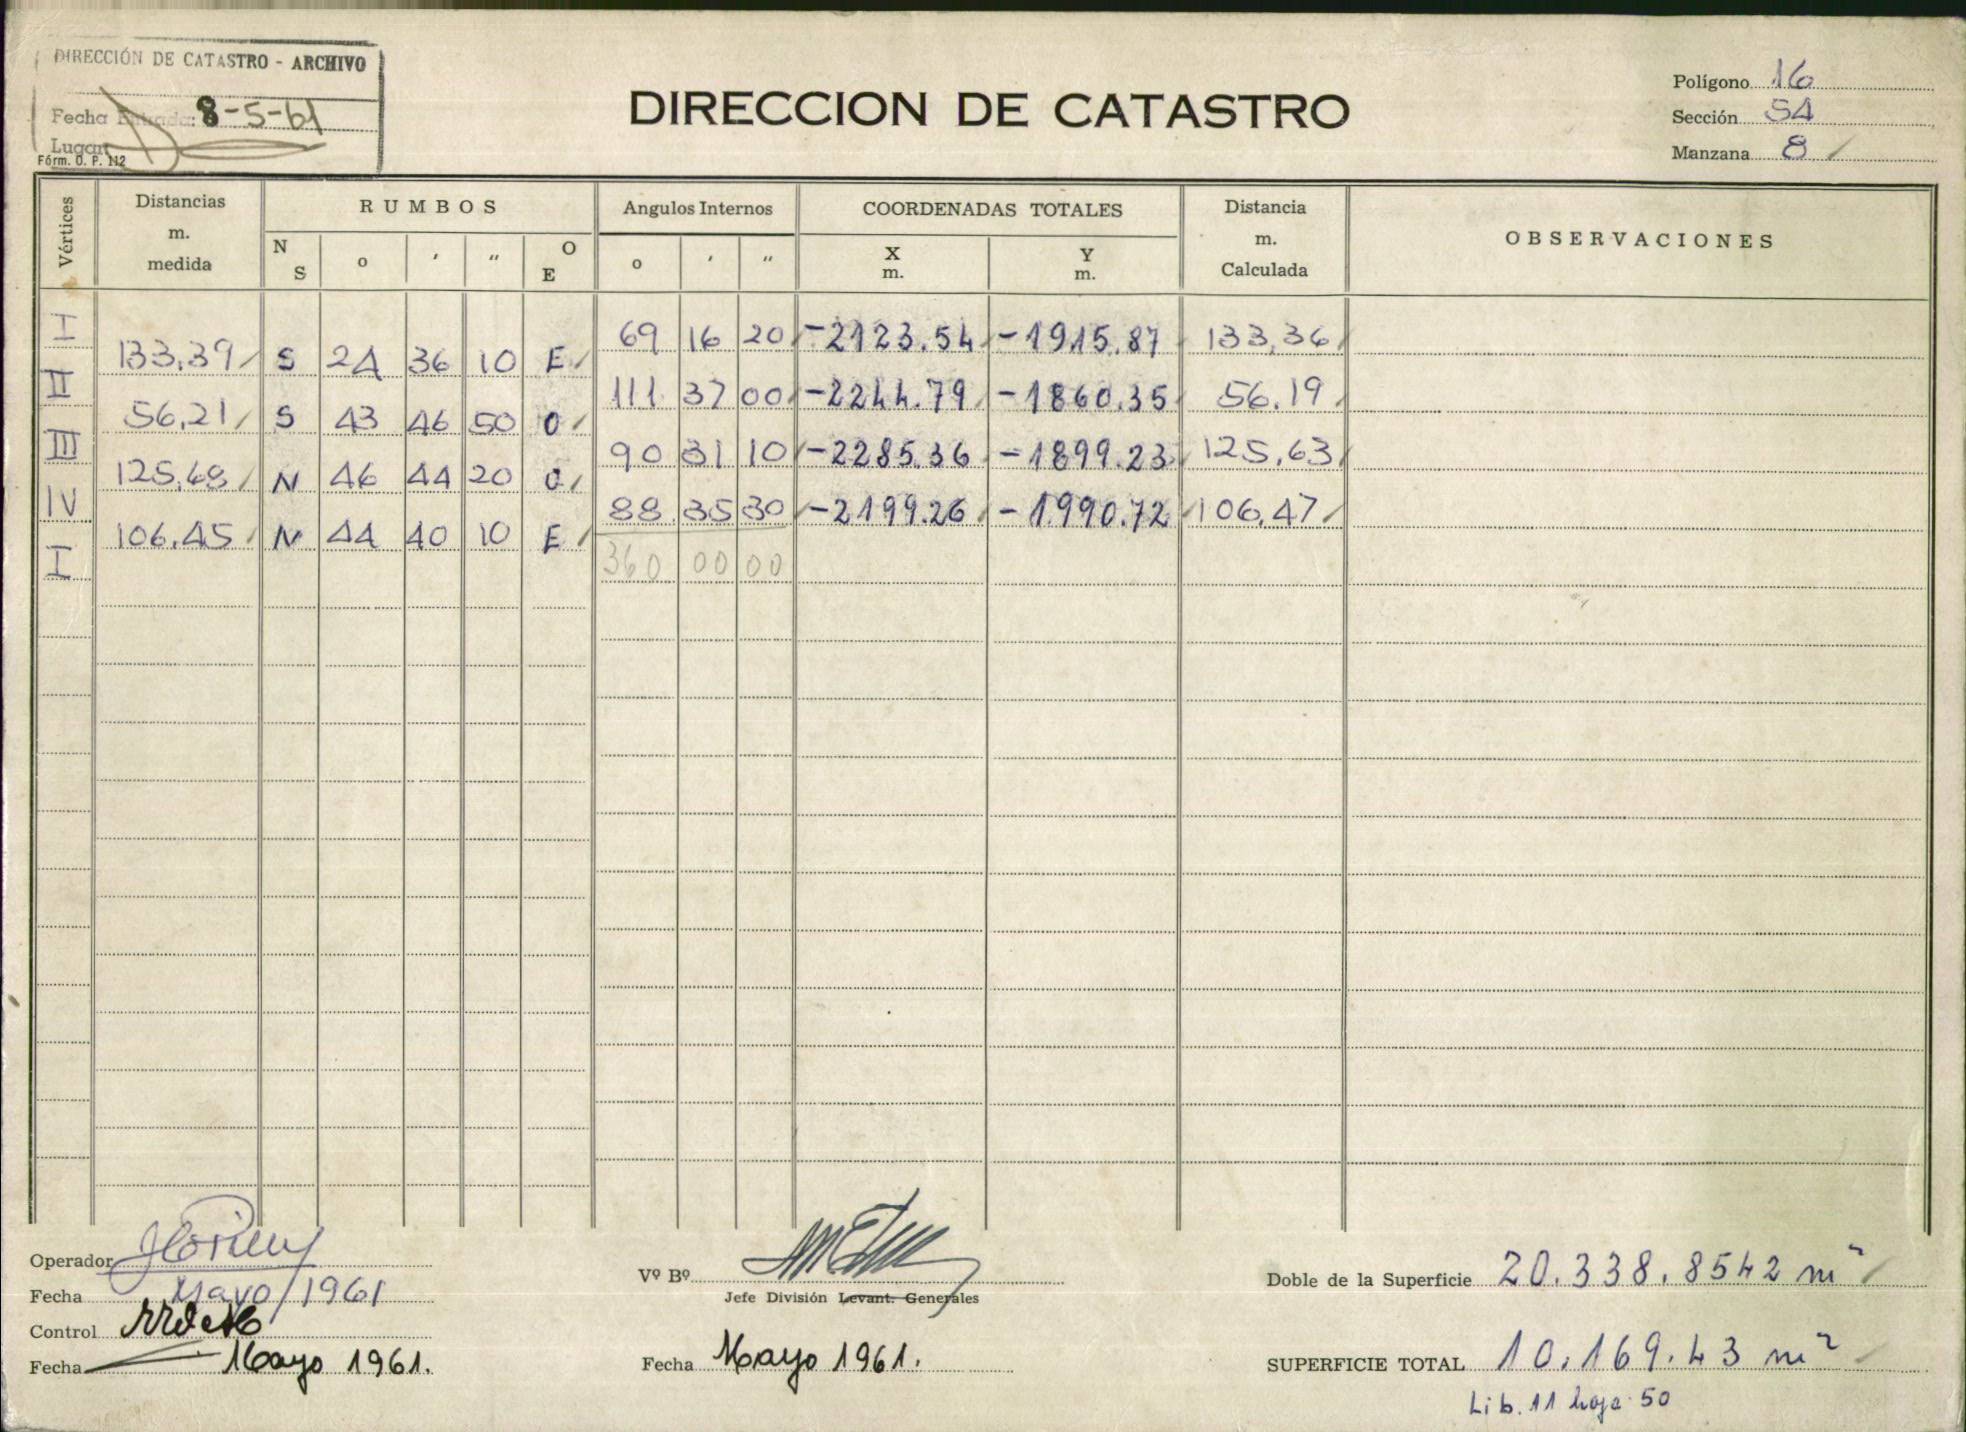 DIRECCIÓN DE CATASTRO - ARCHIVO
Fecha Entrada: 8-5-61
Lugar
Fórm. O. P. 112
DIRECCION DE CATASTRO
Polígono 16
Sección 54
Manzana 8
Vértices
Distancias m. medida
RUMBOS
N S o ′ ″ O E
Angulos Internos
o ′ ″
COORDENADAS TOTALES
X m. Y m.
Distancia m. Calculada
OBSERVACIONES
I 69 16 20 -2123.54 -1915.87 133,36
133,39 S 24 36 10 E
II 111 37 00 -2244.79 -1860.35 56.19
56,21 S 43 46 50 O
III 90 31 10 -2285.36 -1899.23 125,63
125,68 N 46 44 20 O
IV 88 35 30 -2199.26 -1990.72 106,47
106,45 N 44 40 10 E
I 360 00 00
Operador
Fecha Mayo/1961
Control
Fecha Mayo 1961.
Vº Bº
Jefe División Levant. Generales
Fecha Mayo 1961.
Doble de la Superficie 20.338.8542 m²
SUPERFICIE TOTAL 10.169.43 m²
Lib. 11 hoja 50